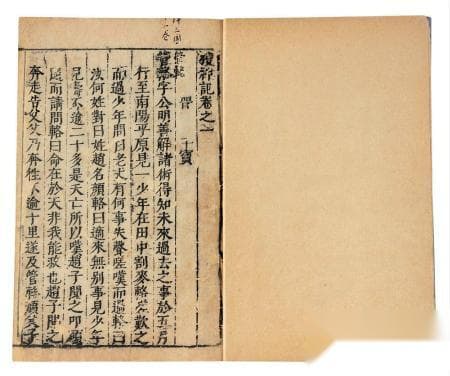 搜神記卷之一
晉 干寶
管輅
管輅字公明善解諸術得知未來過去之事於五月
行至南陽平原見一少年在田中割麥輅嗟歎之
而過少年問曰老丈有何事失聲嗟嘆而過輅曰
汝何姓對曰姓趙名顔輅曰適來無別事見少年
壽不逾二十多是夭亡所以嘆趙子聞之叩
而請問輅曰命在於天非我能救也趙子聞之
奔走告父父乃奔往不逾十里遂及管輅